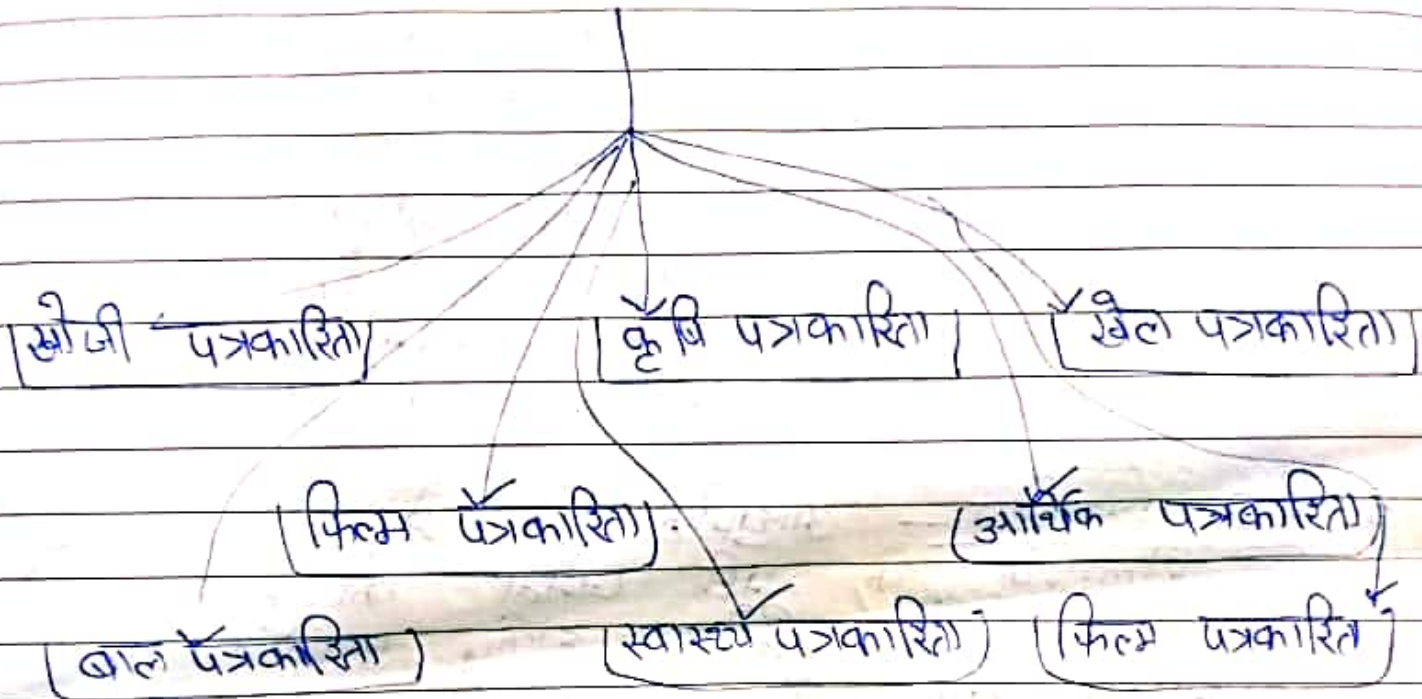 खोजी पत्रकारिता कृषि पत्रकारिता खेल पत्रकारिता
फिल्म पत्रकारिता आर्थिक पत्रकारिता
बाल पत्रकारिता स्वास्थ्य पत्रकारिता फिल्म पत्रकारित